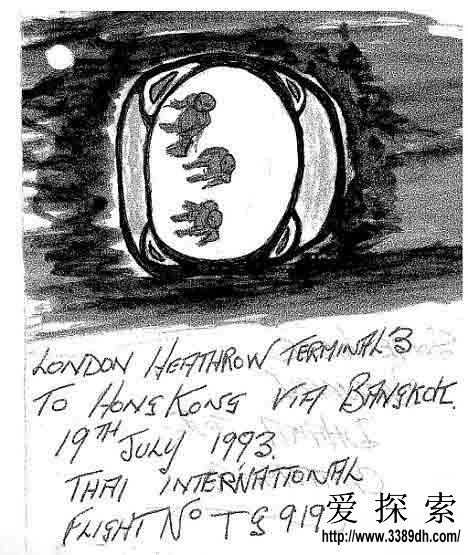 LONDON HEATHROW TERMINAL 3
TO HONG KONG VIA BANGKOK.
19TH JULY 1993.
THAI INTERNATIONAL
FLIGHT NO TG 919
爱探索
http://www.3389dh.com/